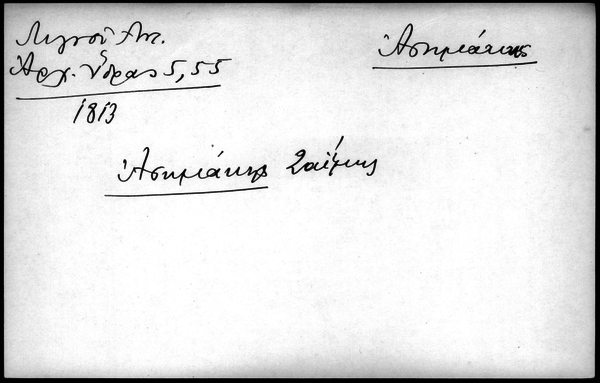 Λιγνοῦ Ἀντ.
Ἀρχ. Ὕδρας 5, 55
1813
Ἀσημιάκης
Ἀσημιάκης Σαΐμης